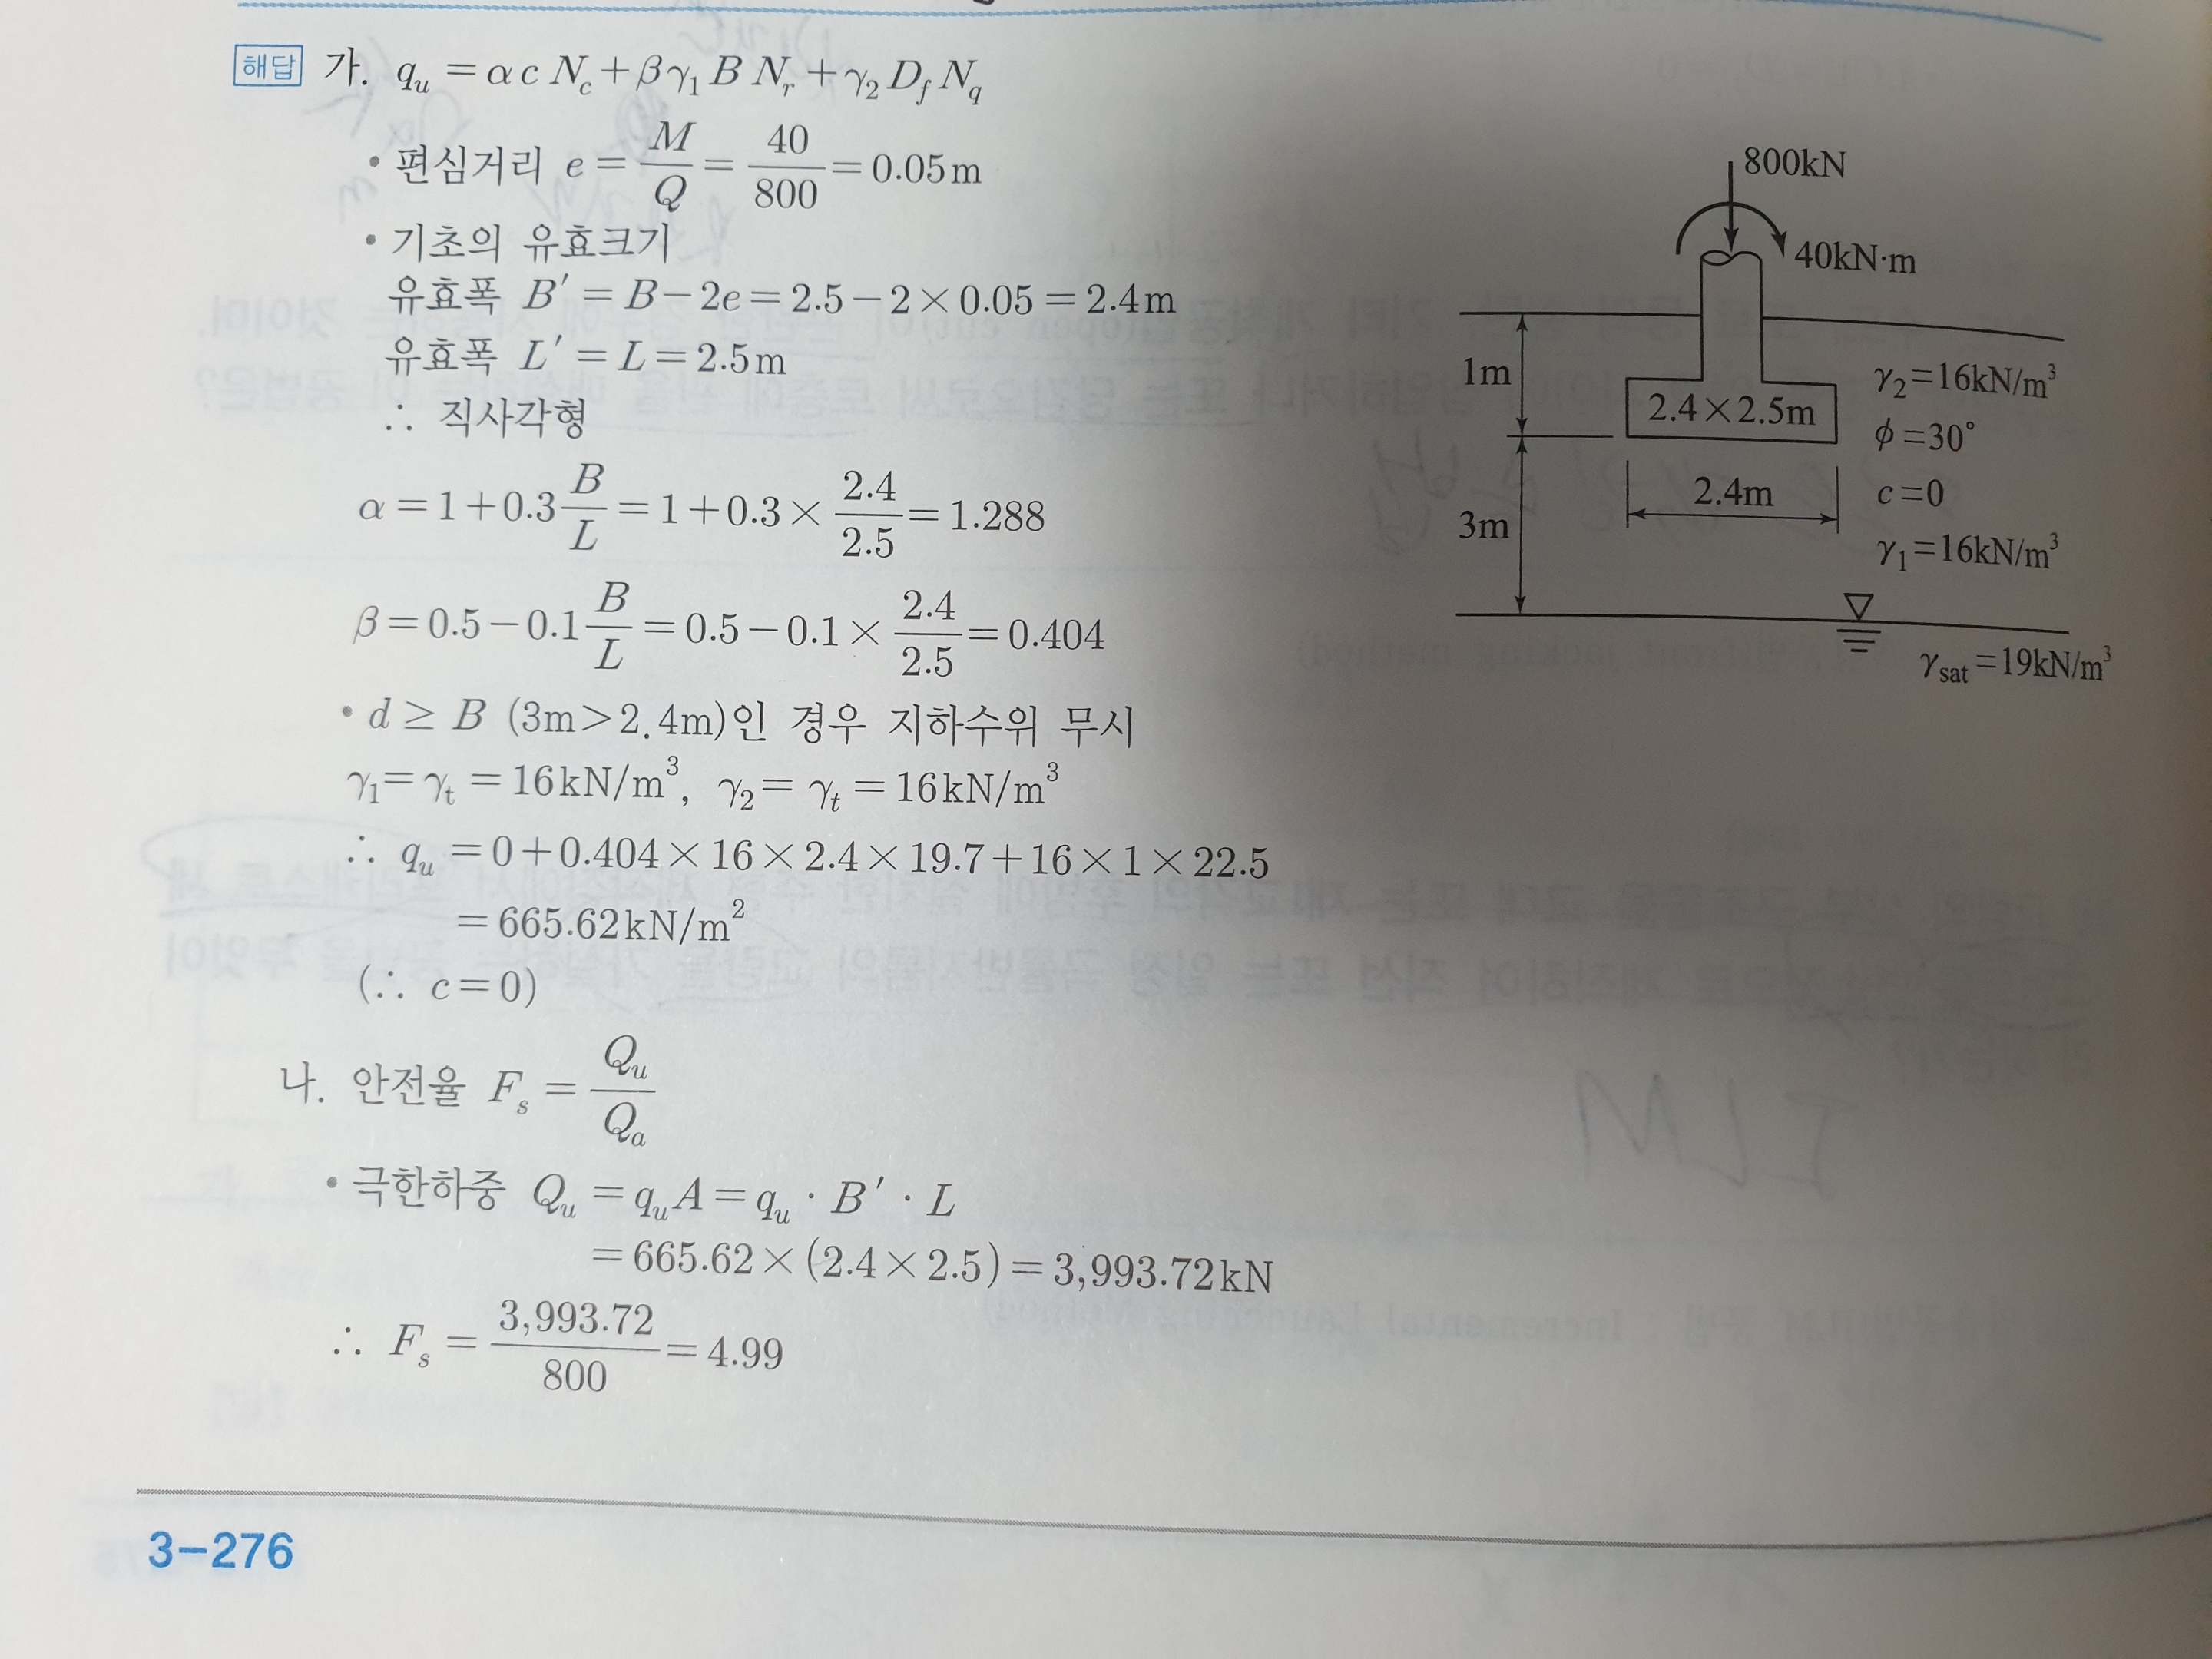 해답 가. qᵤ = α c N_c + β γ₁ B N_r + γ₂ D_f N_q
• 편심거리 e = M/Q = 40/800 = 0.05m
• 기초의 유효크기
유효폭 B′ = B − 2e = 2.5 − 2 × 0.05 = 2.4m
유효폭 L′ = L = 2.5m
∴ 직사각형
α = 1 + 0.3 B/L = 1 + 0.3 × 2.4/2.5 = 1.288
β = 0.5 − 0.1 B/L = 0.5 − 0.1 × 2.4/2.5 = 0.404
• d ≥ B (3m > 2.4m)인 경우 지하수위 무시
γ₁ = γ_t = 16kN/m³, γ₂ = γ_t = 16kN/m³
∴ qᵤ = 0 + 0.404 × 16 × 2.4 × 19.7 + 16 × 1 × 22.5
= 665.62kN/m²
(∴ c = 0)
나. 안전율 F_s = Qᵤ/Qₐ
• 극한하중 Qᵤ = qᵤA = qᵤ · B′ · L
= 665.62 × (2.4 × 2.5) = 3,993.72kN
∴ F_s = 3,993.72/800 = 4.99
800kN
40kN·m
1m
2.4×2.5m
γ₂=16kN/m³
φ=30°
2.4m
c=0
3m
γ₁=16kN/m³
γ_sat=19kN/m³
3-276